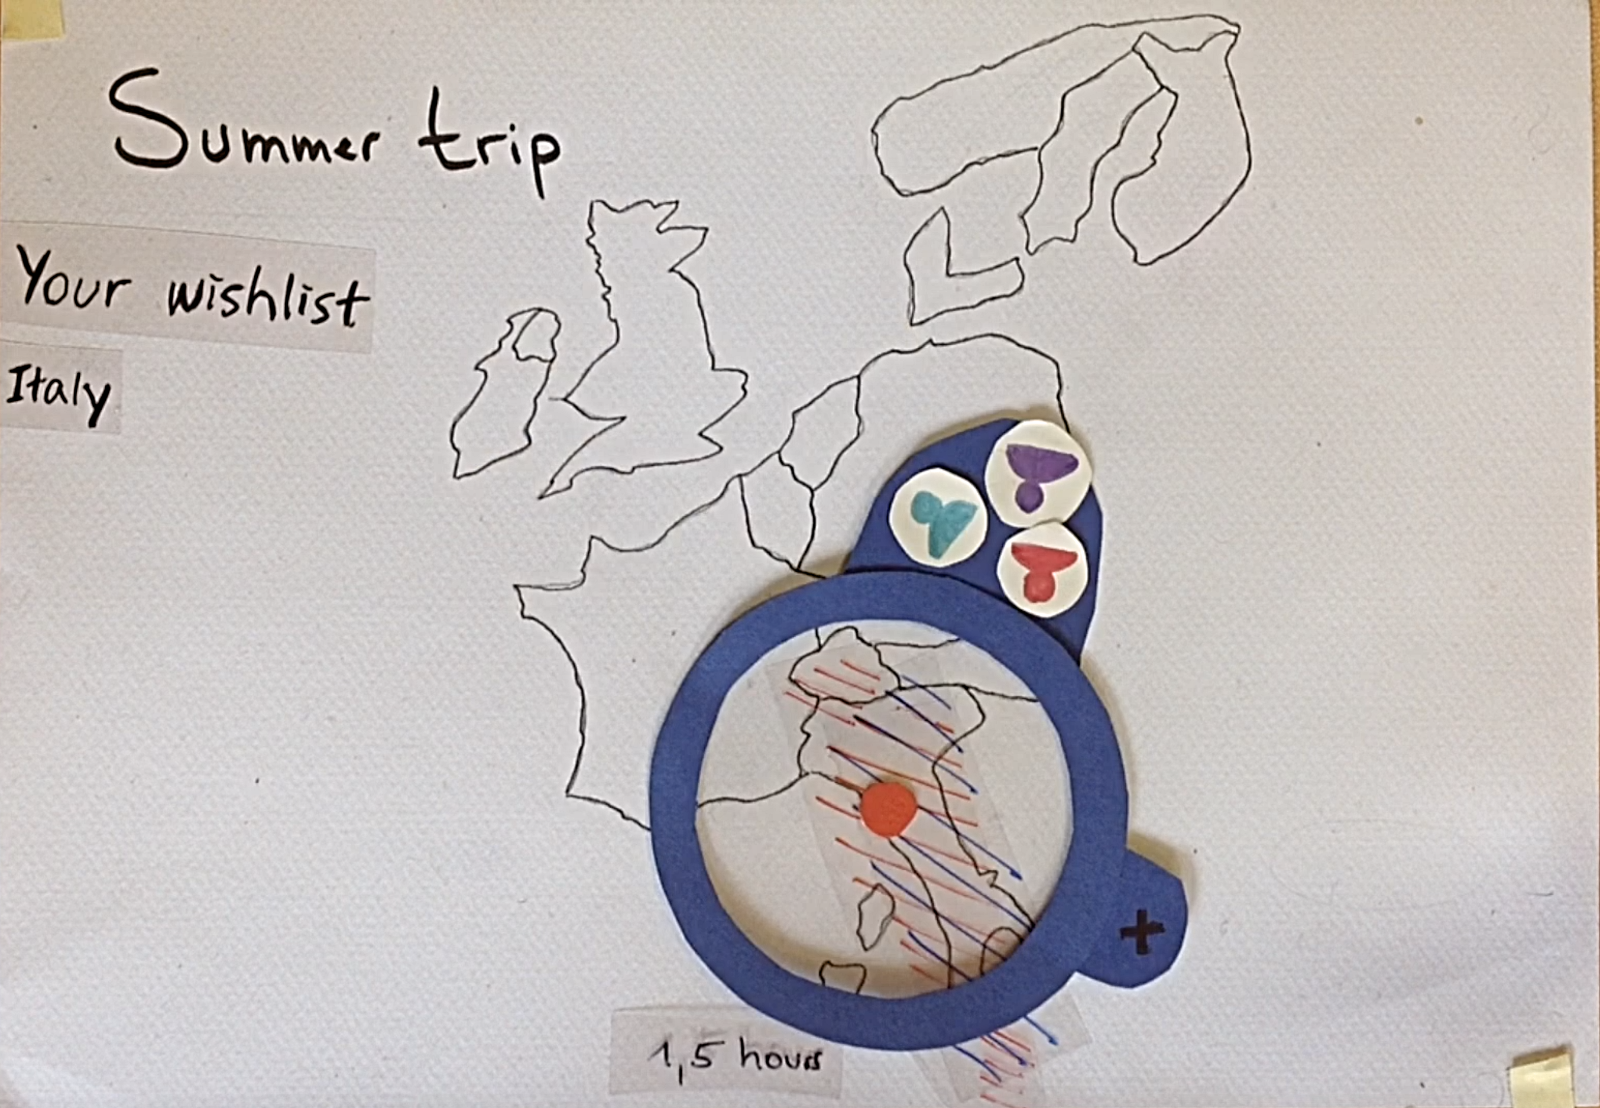 Summer trip
Your wishlist
Italy
+
1,5 hours